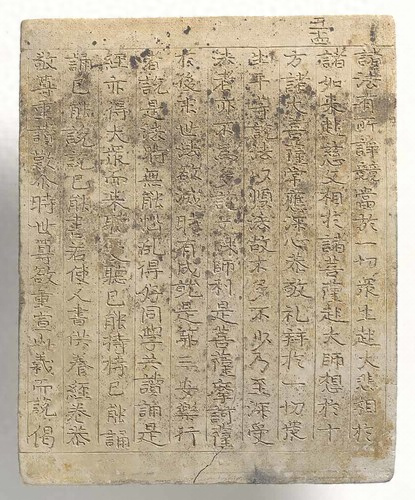 諸法有所諍競當於一切衆生起大悲相於
諸如来起慈父相於諸菩薩起大師想於十
方諸大菩薩常應深心恭敬礼拜於一切衆
生平等說法以順法故不多不少乃至深愛
法者亦不為多說文殊師利是菩薩摩訶薩
於後末世法欲滅時有成就是苐三安樂行
者說是法時無能惱乱得好同學共讀誦是
經亦得大衆而來聽受聽已能持持已能誦
誦已能說說已能書若使人書供養經卷恭
敬尊重讃歎尒時世尊欲重宣此義而說偈